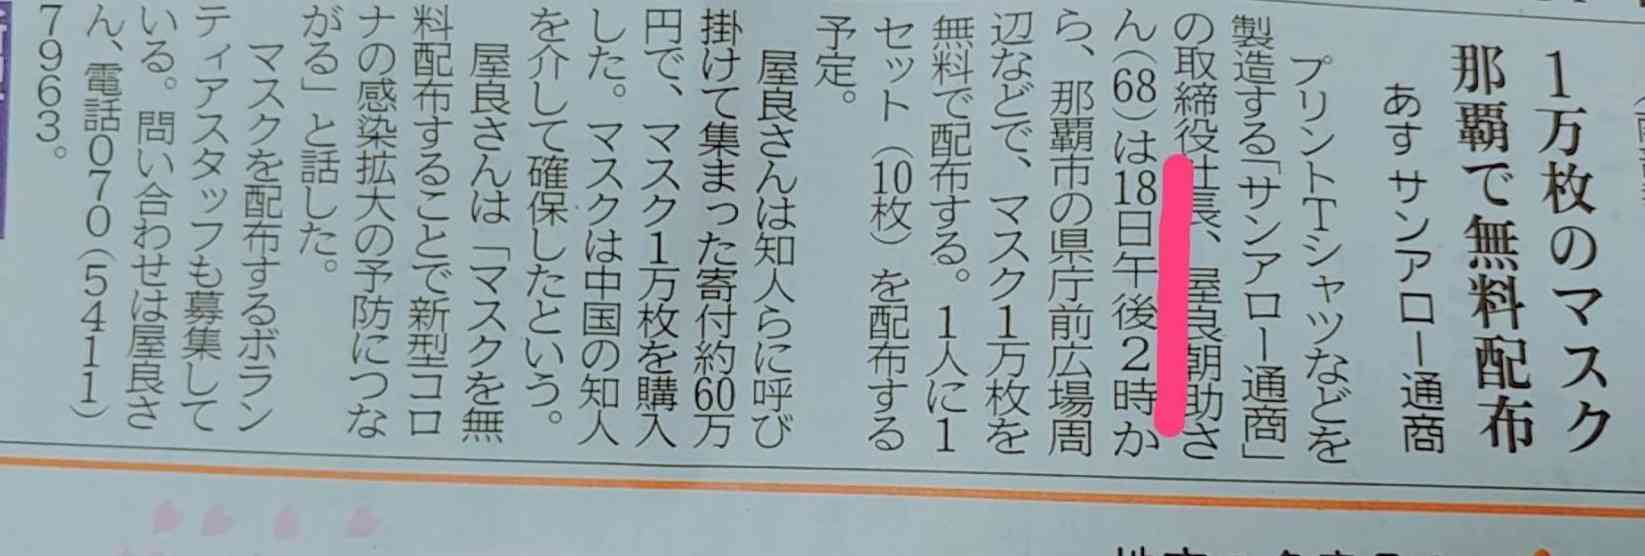 1万枚のマスク
那覇で無料配布
あす サンアロー通商
プリントTシャツなどを
製造する「サンアロー通商」
の取締役社長、屋良朝助さ
ん(68)は18日午後2時か
ら、那覇市の県庁前広場周
辺などで、マスク1万枚を
無料で配布する。1人に1
セット(10枚)を配布する
予定。
屋良さんは知人らに呼び
掛けて集まった寄付約60万
円で、マスク1万枚を購入
した。マスクは中国の知人
を介して確保したという。
屋良さんは「マスクを無
料配布することで新型コロ
ナの感染拡大の予防につな
がる」と話した。
マスクを配布するボラン
ティアスタッフも募集して
いる。問い合わせは屋良さ
ん、電話070(5411)
7963。